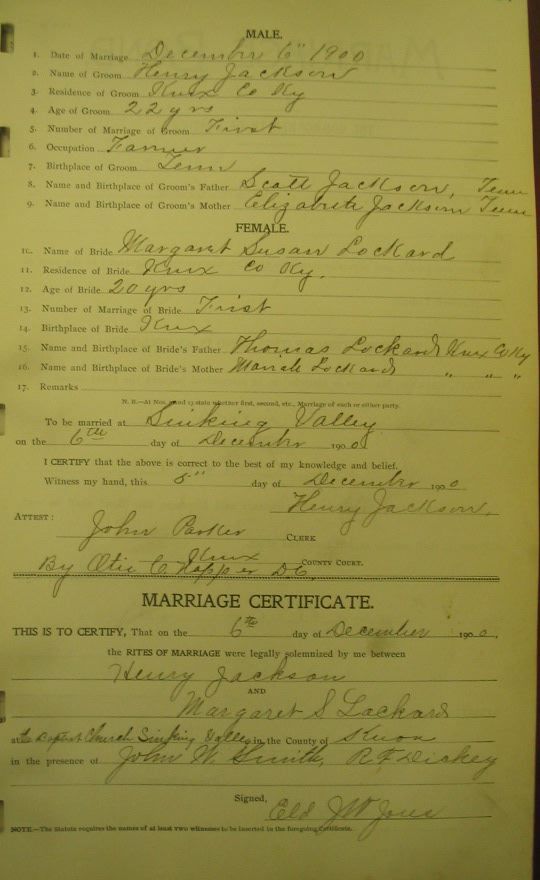 MALE.
1. Date of Marriage December 6" 1900
2. Name of Groom Henry Jackson
3. Residence of Groom Knox Co Ky
4. Age of Groom 22 yrs
5. Number of Marriage of Groom First
6. Occupation Farmer
7. Birthplace of Groom Tenn
8. Name and Birthplace of Groom's Father Scott Jackson, Tenn
9. Name and Birthplace of Groom's Mother Elizabeth Jackson Tenn
FEMALE.
10. Name of Bride Margaret Susan Lockard
11. Residence of Bride Knox Co Ky.
12. Age of Bride 20 yrs
13. Number of Marriage of Bride First
14. Birthplace of Bride Knox
15. Name and Birthplace of Bride's Father Thomas Lockard Knox Co Ky
16. Name and Birthplace of Bride's Mother Lockard " " "
17. Remarks
N. B.—At Nos. 5 and 13 state whether first, second, etc., Marriage of each or either party.
To be married at Sinking Valley
on the 6th day of December 1900
I CERTIFY that the above is correct to the best of my knowledge and belief.
Witness my hand, this 5" day of December 1900
Henry Jackson.
ATTEST:
John Parker CLERK
Knox COUNTY COURT.
By Otis C. Hopper D.C.
MARRIAGE CERTIFICATE.
THIS IS TO CERTIFY, That on the 6th day of December 1900,
the RITES OF MARRIAGE were legally solemnized by me between
Henry Jackson
AND
Margaret S Lockard
at the Baptist Church Sinking Valley in the County of Knox
in the presence of John W. Smith, R. F. Dickey
Signed,
Eld J W Jones
NOTE.—The Statute requires the names of at least two witnesses to be inserted in the foregoing certificate.